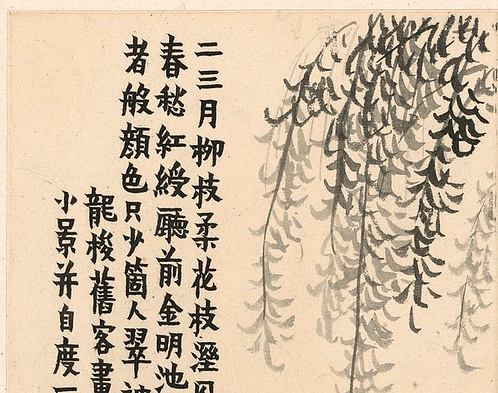 二三月柳枝柔花枝溼
春愁紅綬廳前金明池
者般顏色只少箇人翠
龍梭舊客畫
小景并自度一